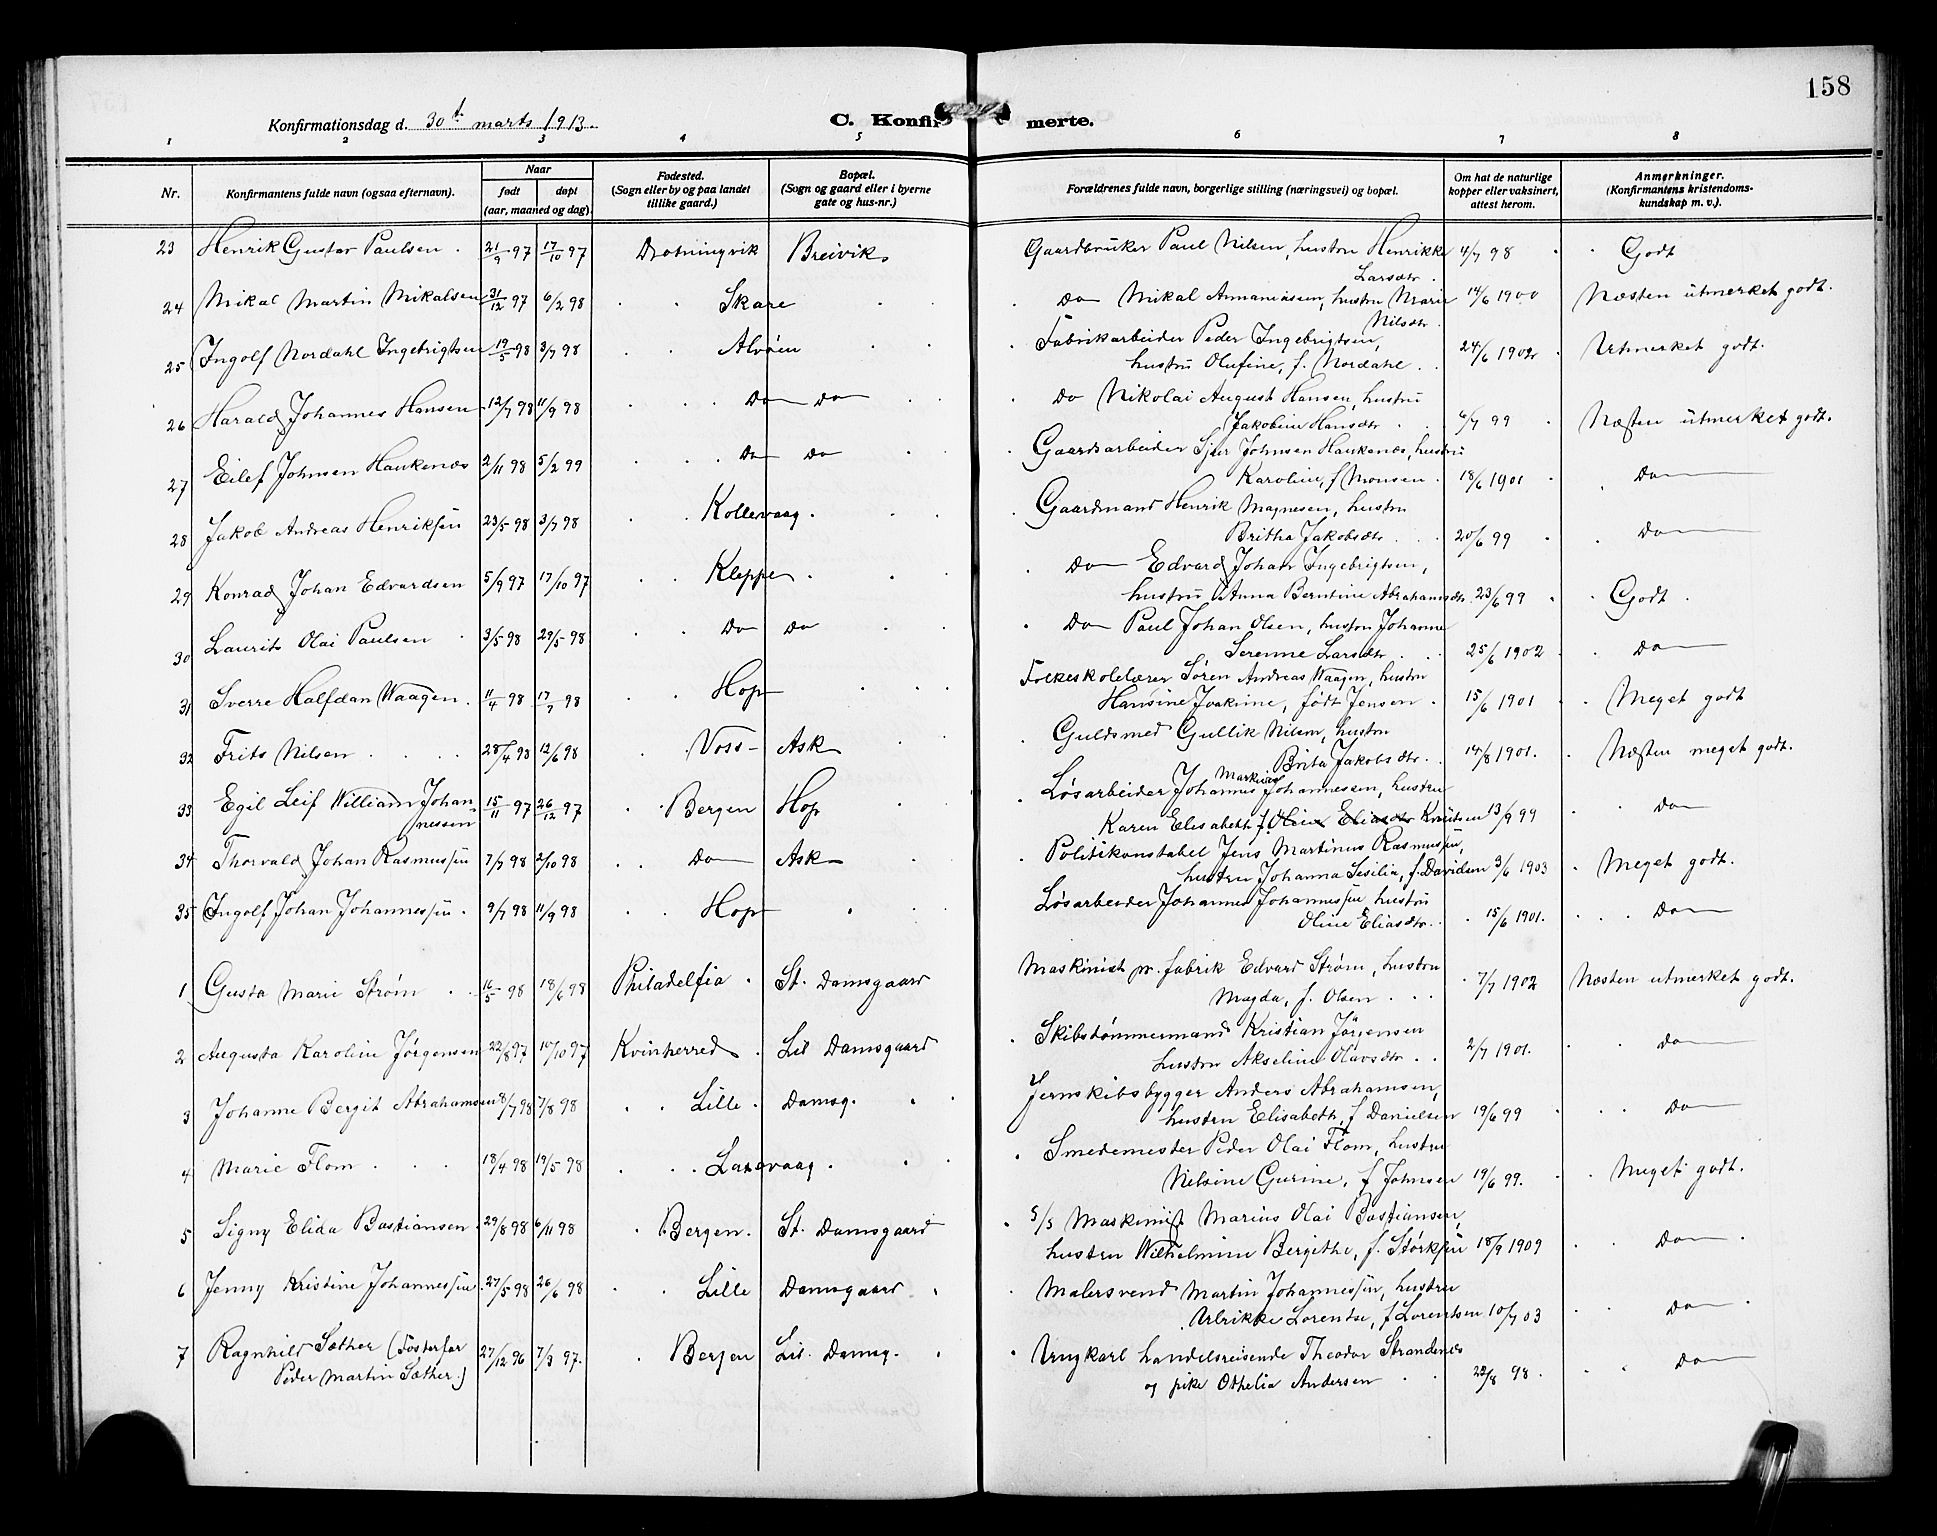 158
Konfirmationsdag d. 30te marts 1913.
C. Konfirmerte.
1 2 3 4 5 6 7 8
Nr. Konfirmantens fulde navn (ogsaa efternavn). Naar født døpt (aar, maaned og dag) Fødested. (Sogn eller by og paa landet tillike gaard.) Bopæl. (Sogn og gaard eller i byerne gate og hus-nr.) Forældrenes fulde navn, borgerlige stilling (næringsvei) og bopæl. Om hat de naturlige kopper eller vaksinert, attest herom. Anmerkninger. (Konfirmantens kristendomskundskap m. v.).
23 Henrik Gustav Paulsen . 21/9 97 17/10 97 Drotningvik Breivik. Gaardbruker Paul Nilsen, hustru Henrikke 4/7 98 Godt
Larsdtr.
24 Mikal Martin Mikalsen 31/12 97 6/2 98 Skare Do Mikal Annaniassen, hustru Marie 14/6 1900 Næsten utmerket godt.
Nilsdtr.
25 Ingolf Nordahl Ingebrigtsen 19/5 98 3/7 98 Alvøen Fabrikarbeider Peder Ingebrigtsen, 24/6 1902 Utmerket godt.
hustru Olufine, f. Nordahl
26 Harald Johannes Hansen 12/7 98 11/9 98 Do Do Do Nikolai August Hansen, hustru
Jakobine Hansdtr 6/7 99 Næsten utmerket godt.
27 Eilef Johnsen Haukenæs 2/11 98 5/2 99 Do Do Gaardsarbeider Sjur Johnsen Haukenæs, hustru
Karoline, f Monsen 18/6 1901 Do
28 Jakob Andreas Henriksen 23/5 98 3/7 98 Kollevaag. Gaardmand Henrik Magnesen, hustru
Britha Jakobsdtr 20/6 99 Do
29 Konrad Johan Edvardsen 5/9 97 17/10 97 Kleppe. Do Edvard Johan Ingebrigtsen,
hustru Anna Berntine Abrahamsdtr. 23/6 99 Godt.
30 Laurits Olai Paulsen 3/5 98 29/5 98 Do Do Do Paul Johan Olsen, hustru Johanne
Serenne Larsdtr 25/6 1902 Do
31 Sverre Halfdan Waagen. 11/4 98 17/7 98 Hop Folkeskolelærer Søren Andreas Waagen, hustru
Hansine Joakime, født Jensen 15/6 1901 Meget godt
32 Frits Nilsen 28/4 98 12/6 98 Voss- Ask Guldsmed Gullik Nilsen, hustru
Brita Jakobsdtr. 14/8 1901. Næsten meget godt.
33 Egil Leif William Johan- 15/11 97 26/12 97 Bergen Hop Løsarbeider Johannes Johannessen, hustru
nessen Karen Elisabeth f. Oline Eliasdtr Knutsen 13/9 99 Do
34 Thorvald Johan Rasmussen 7/7 98 2/10 98 Do Ask Politikonstabel Jens Martinus Rasmussen,
hustru Johanna Sesilia, f. Davidsen 3/6 1903 Meget godt.
35 Ingolf Johan Johannessen. 9/7 98 11/9 98 Hop Løsarbeider Johannes Johannessen hustru
Oline Eliasdtr. 15/6 1901. Do
1 Gusta Marie Strøm 16/5 98 18/6 98 Philadelfia St. Damsgaard Maskinist pr. fabrik Edvard Strøm, hustru
Magda, f. Olsen 7/7 1902 Næsten utmerket godt.
2 Augusta Karoline Jørgensen 22/8 97 10/10 97 Kvinherred Lil Damsgaard Skibstømmermand Kristian Jørgensen
hustru Akseline Olavsdtr 2/7 1901. Do
3 Johanne Bergit Abrahamsen 8/7 98 7/8 98 Lille Damsg. Jernskibsbygger Anders Abrahamsen,
hustru Elisabeth, f Danielsen 19/6 99 Do
4 Marie Flom 18/4 98 19/5 98 Laxevaag Smedemester Peder Olai Flom, hustru
Nelsine Gurine, f Johnsen 19/6 99. Meget godt.
5 Signy Elida Bastiansen 29/8 98 6/11 98 Bergen. St. Damsgaard S/S Maskinist Marius Olai Bastiansen,
hustru Wilhelmine Bergithe, f. Størksen 18/9 1909 Do
6 Jenny Kristine Johannessen 27/5 98 26/6 98 Lille Damsgaard Malersvend Martin Johannessen, hustru
Ulrikke Lorentse, f Lorentsen 10/7 03 Do
7 Ragnhild Sæther (Fosterfar 27/12 96 7/3 97. Bergen Lil. Damsg. Ungkarl handelsreisende Theodor Strandenes
Peder Martin Sæther.) og pike Othelia Andersen 22/8 98. Do